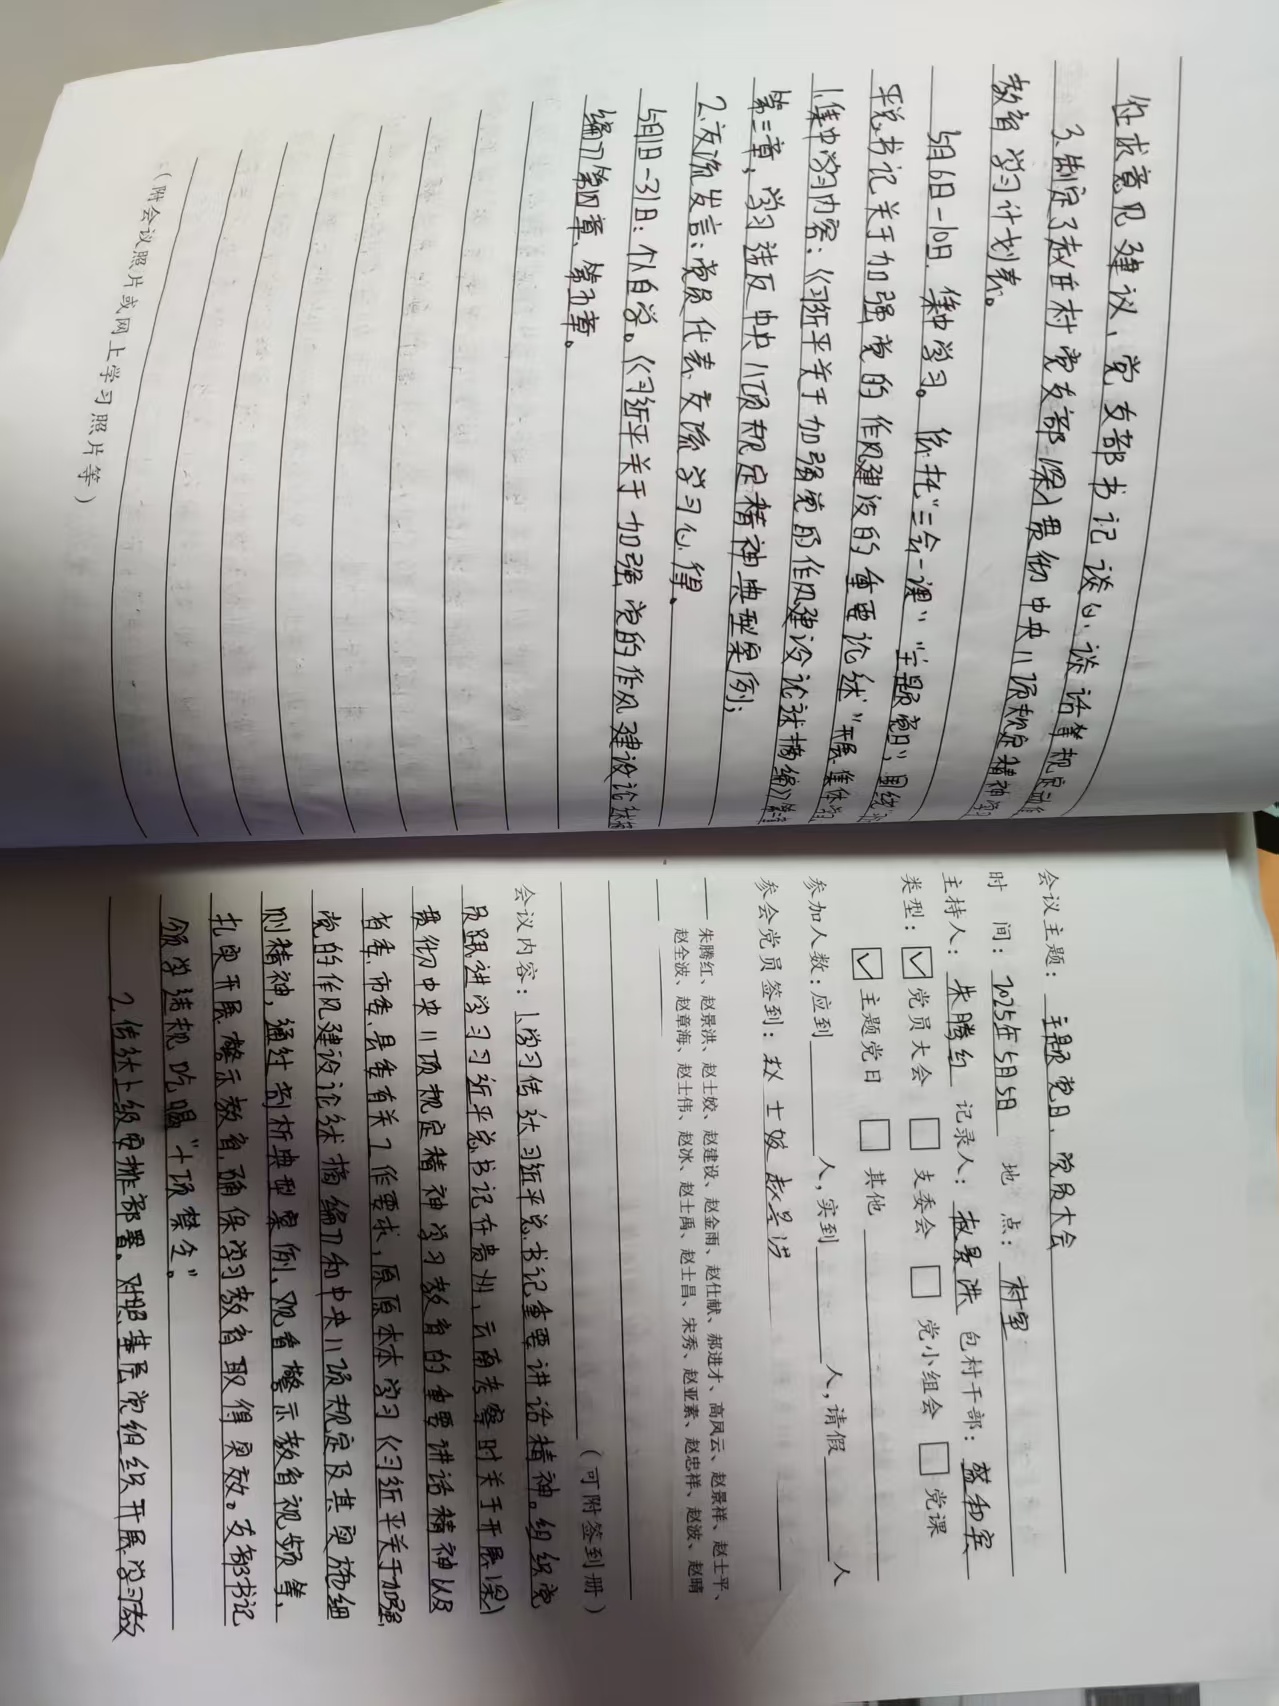 征求意见建议、党支部书记谈心谈话等规定动作
3.制定了赵庄村党支部深入贯彻中央八项规定精神学习
教育学习计划表。
5月6日-10日.集中学习。依托"三会一课""主题党日",围绕"习近
平总书记关于加强党的作风建设的重要论述"开展集体学习
1.集中学习内容:《习近平关于加强党的作风建设论述摘编》
第三章,学习违反中央八项规定精神典型案例;
2.交流发言:党员代表交流学习心得。
5月11日-31日:个人自学。《习近平关于加强党的作风建设论述摘
编》第四章、第五章。
(附会议照片或网上学习照片等)
会议主题: 主题党日、党员大会
时 间: 2025年5月5日 地 点: 村室
主持人: 朱腾红 记录人: 赵景洪 包村干部:
类型: ☑党员大会 □支委会 □党小组会 □党课
☑主题党日 □其他
参加人数:应到 人,实到 人,请假 人
参会党员签到: 赵士姣 赵景洪
朱腾红、赵景洪、赵士姣、赵建设、赵金雨、赵仕献、郝进才、高凤云、赵景祥、赵士平、
赵全波、赵章海、赵士伟、赵冰、赵士禹、赵士昌、宋秀、赵亚素、赵忠祥、赵波、赵晴
(可附签到册)
会议内容: 1.学习传达习近平总书记重要讲话精神。组织党
员跟进学习习近平总书记在贵州,云南考察时关于开展深入
贯彻中央八项规定精神学习教育的重要讲话精神以及
省委、市委、县委有关工作要求,原原本本学习《习近平关于加强
党的作风建设论述摘编》和中央八项规定及其实施细
则精神,通过剖析典型案例、观看警示教育视频等、
扎实开展警示教育,确保学习教育取得实效。支部书记
领学违规吃喝"十项禁令"。
2.传达上级安排部署,对照基层党组织开展学习教